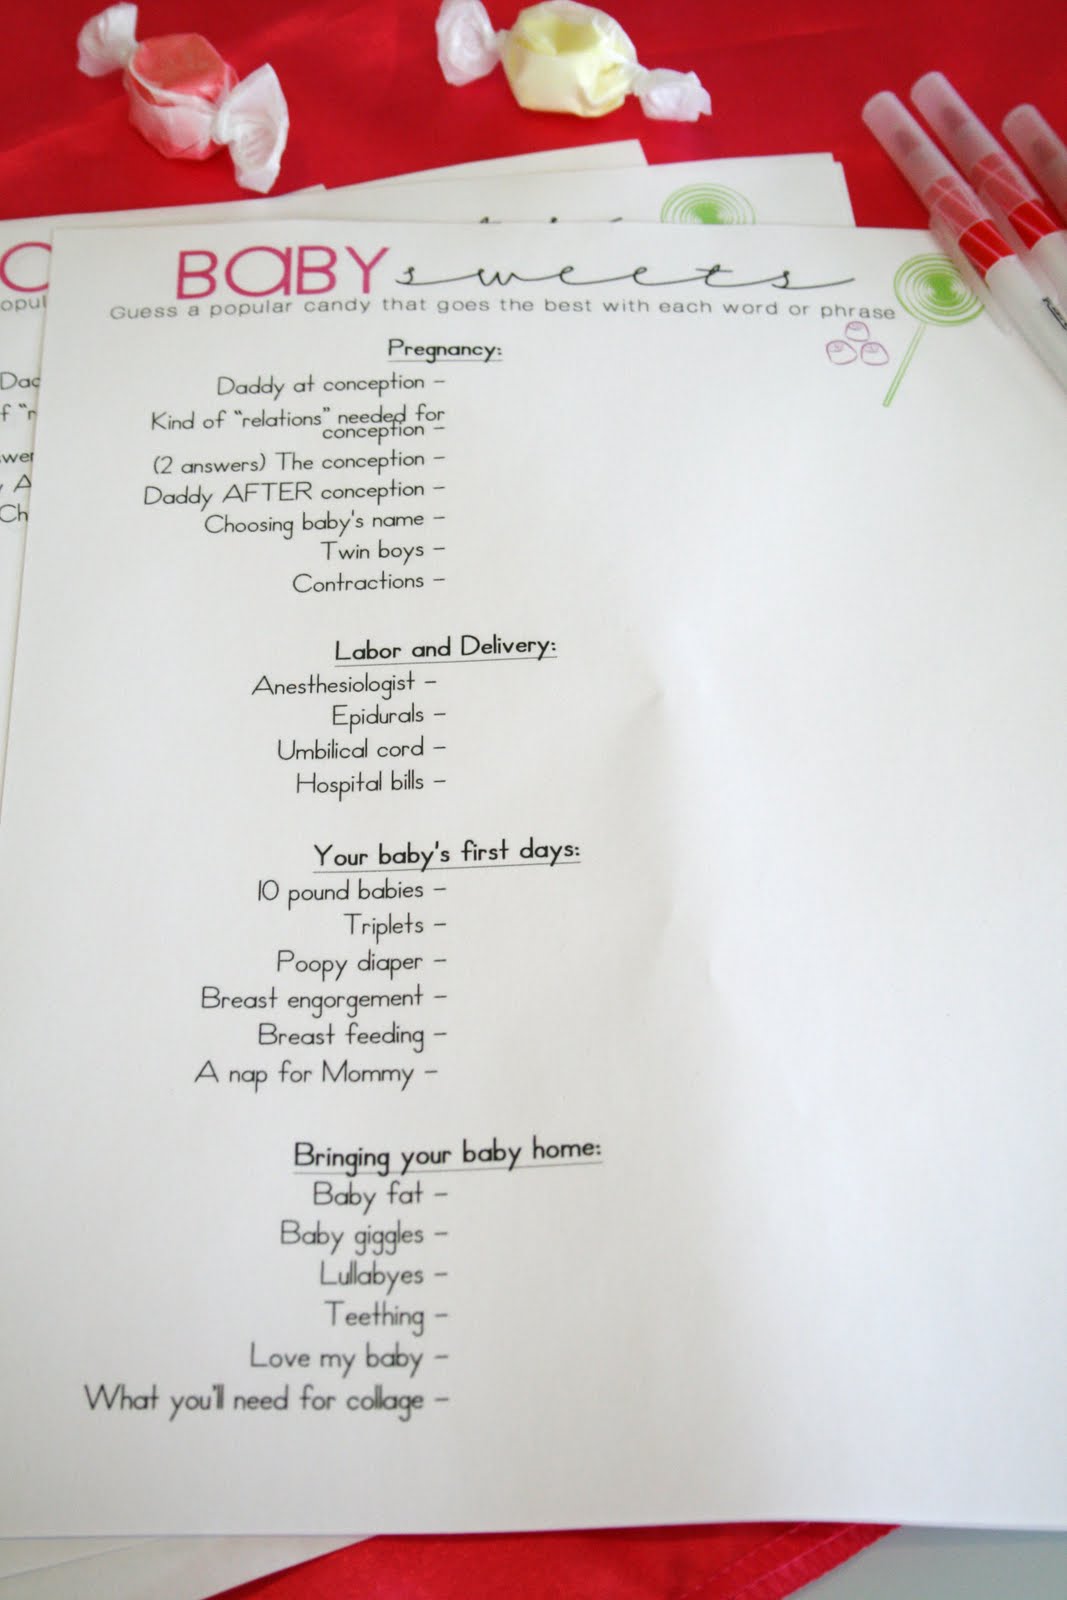 BABY sweets
Guess a popular candy that goes the best with each word or phrase
Pregnancy:
Daddy at conception -
Kind of "relations" needed for
conception -
(2 answers) The conception -
Daddy AFTER conception -
Choosing baby's name -
Twin boys -
Contractions -
Labor and Delivery:
Anesthesiologist -
Epidurals -
Umbilical cord -
Hospital bills -
Your baby's first days:
10 pound babies -
Triplets -
Poopy diaper -
Breast engorgement -
Breast feeding -
A nap for Mommy -
Bringing your baby home:
Baby fat -
Baby giggles -
Lullabyes -
Teething -
Love my baby -
What you'll need for collage -
opul
Dad
f "r
wer
y A
Ch